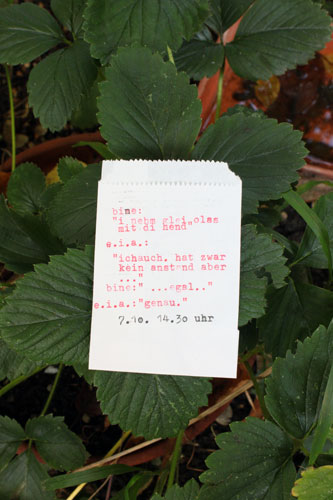 bine:
"i nehm glei,olas
mit di hend"
e.i.a.:
"ichauch. hat zwar
kein anstand aber
..."
bine:" ...egal.."
e.i.a.:"genau."
7.10. 14.30 uhr